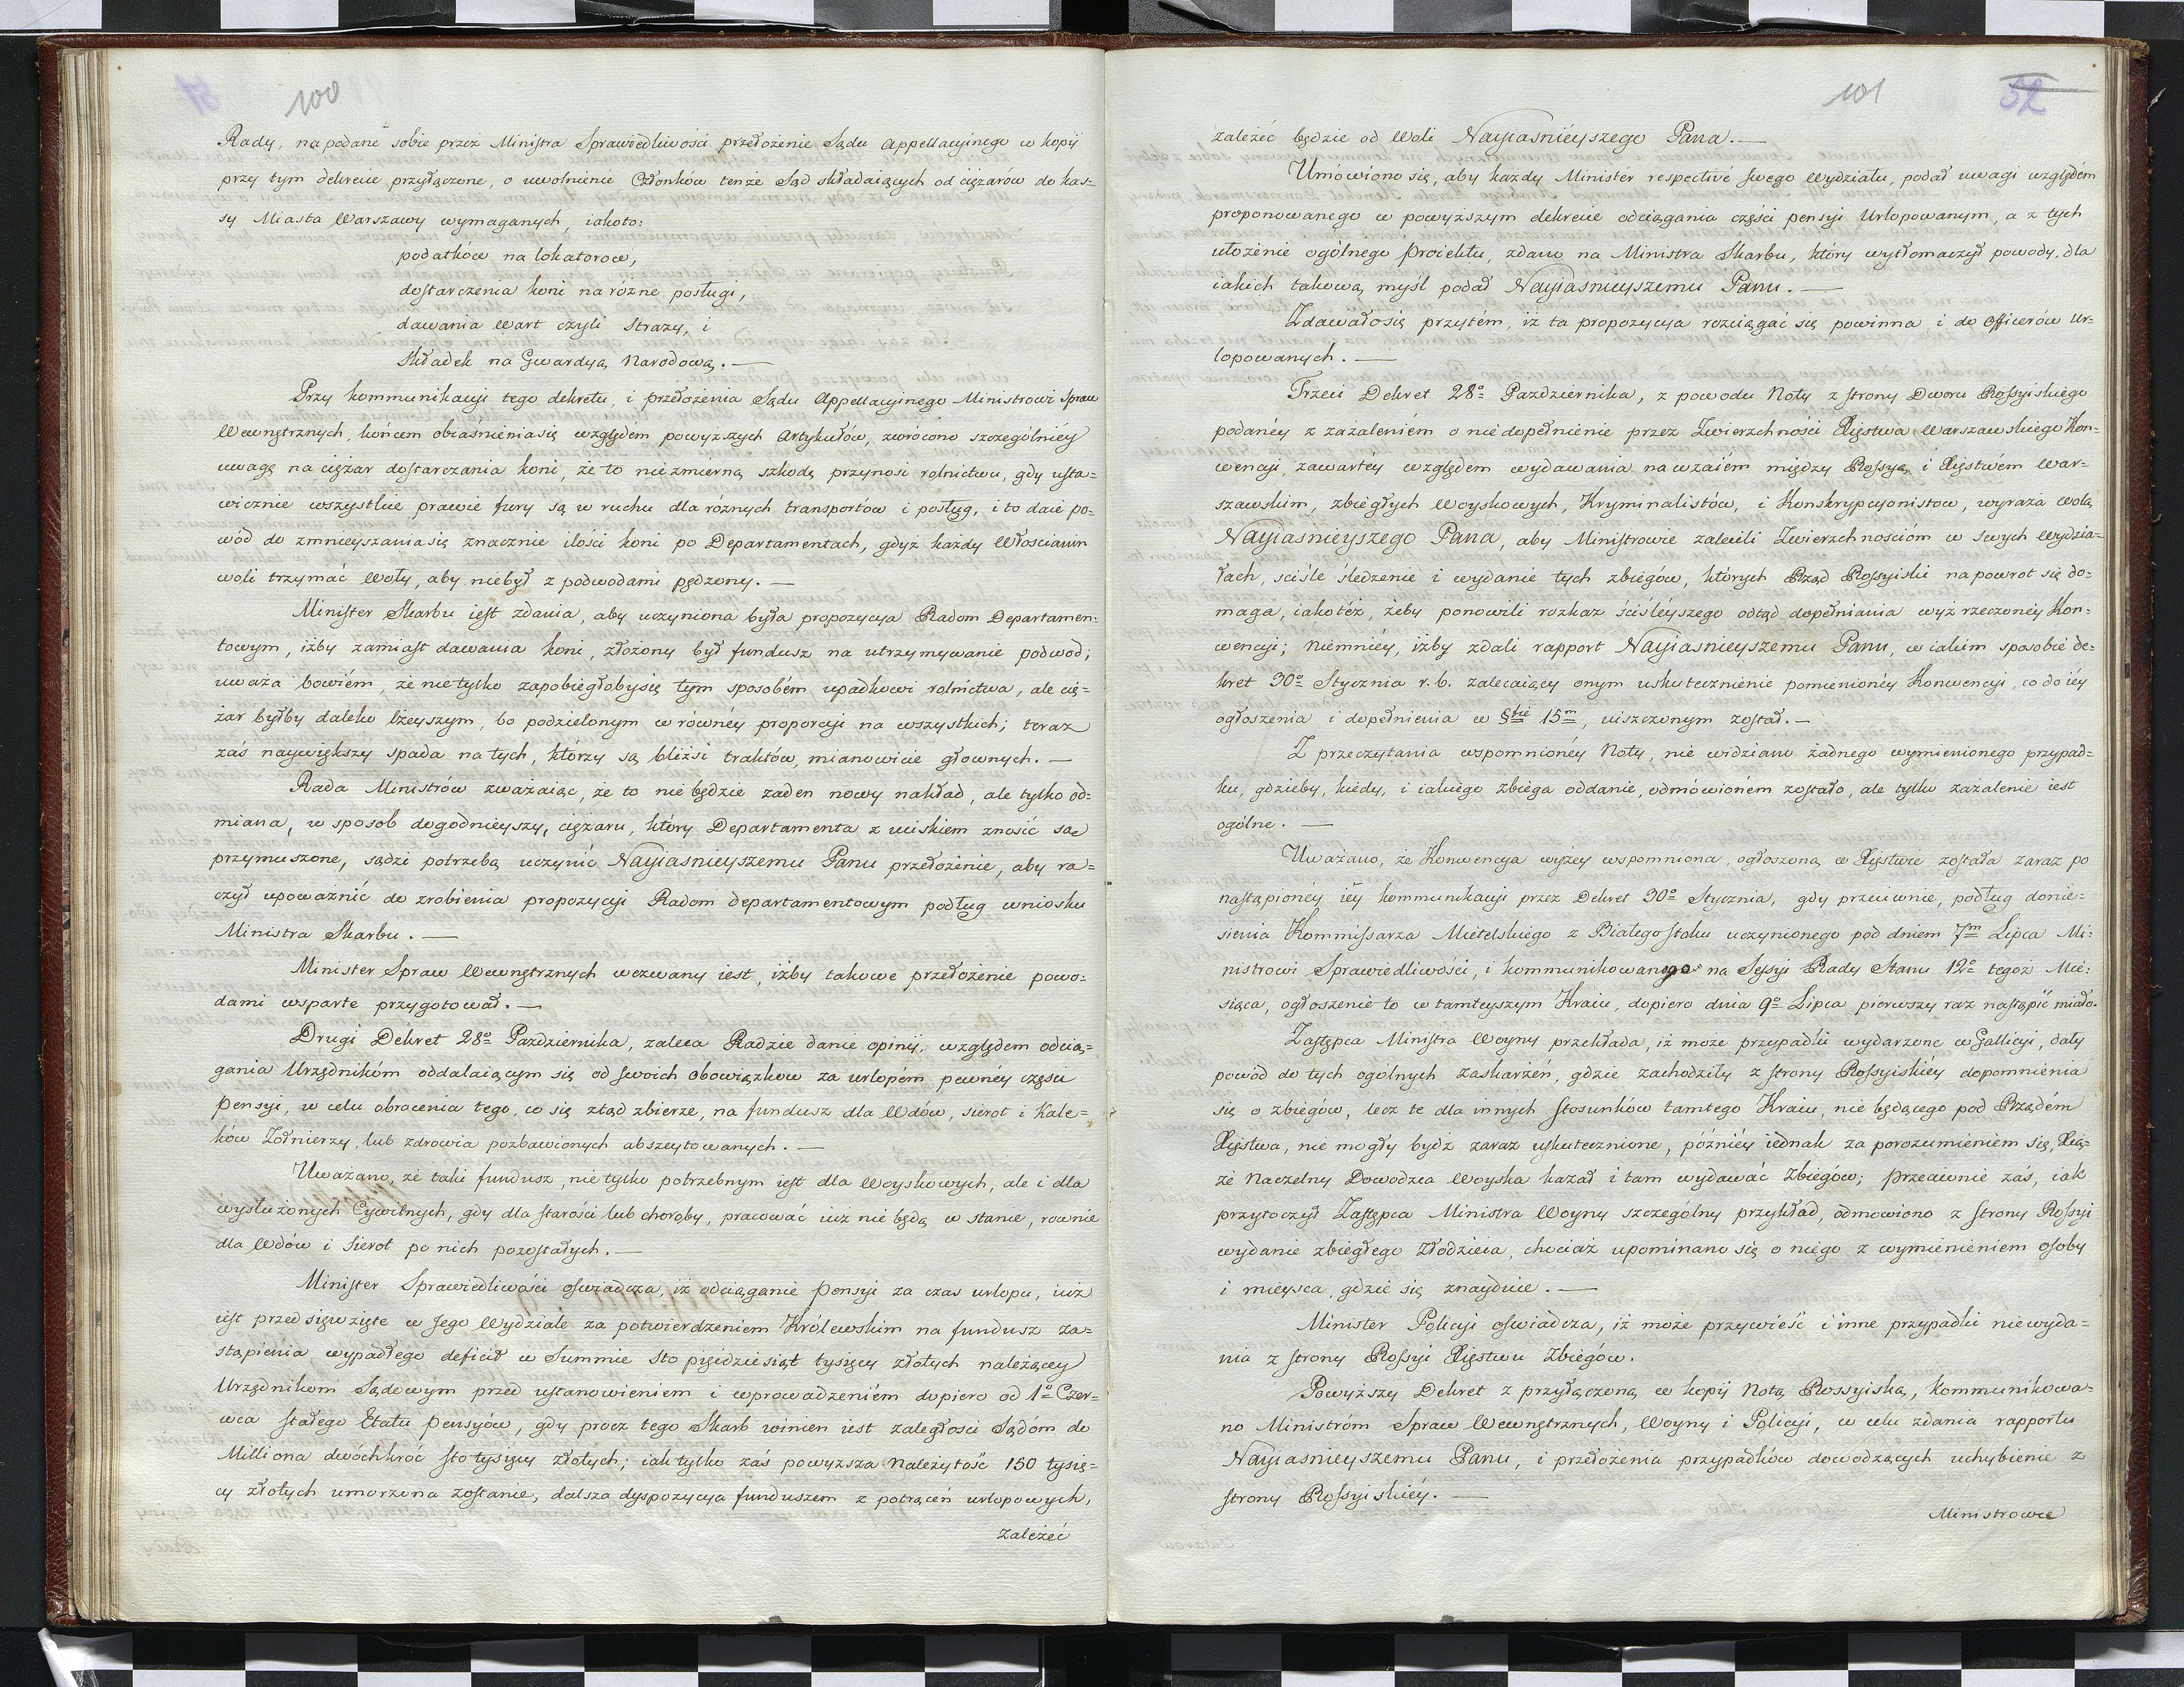 100
Rady, na podane sobie przez Ministra Sprawiedliwości przełożenie Sądu Appellacyinego w kopij
przy tym dekrecie przyłączone, o uwolnienie Członków tenże Sąd składaiących od ciężarów do kas=
sy Miasta Warszawy wymaganych, iakoto:
podatków na lokatorow,
dostarczenia koni na różne posługi,
dawania Wart czyli Straży, i
Składek na Gwardyą Narodową. —
Przy kommunikacyi tego dekretu, i przełożenia Sądu Appellacyinego Ministrowi Spraw
Wewnętrznych, końcem obiaśnienia się względem powyższych Artykułów, zwrócono szczególniéy
uwagę na ciężar dostarczania koni, że to niezmierną szkodę przynosi rolnictwu, gdy usta=
wicznie wszystkie prawie fury są w ruchu dla różnych transportów i posług, i to daie po=
wód do zmnieyszania się znacznie ilości koni po Departamentach, gdyż każdy Włościanin
woli trzymać Woły, aby niebył z podwodami pędzony. —
Minister Skarbu iest zdania, aby uczyniona była propozycya Radom Departamen=
towym, iżby zamiast dawania koni, złożony był fundusz na utrzymywanie podwod;
uważa bowiém, że nietylko zapobiegłobysię tym sposobém upadkowi rolnictwa, ale cię=
żar byłby daleko lżeyszym, bo podzielonym w równéy proporcyi na wszystkich; teraz
zaś naywiększy spada na tych, którzy są bliżsi traktów, mianowicie głownych. —
Rada Ministrów zważaiąc, że to nie będzie żaden nowy nakład, ale tylko od=
miana, w sposob dogodnieyszy, ciężaru, który Departamenta z uciskiem znosić są
przymuszone, sądzi potrzebą uczynić Nayiasnieyszemu Panu przełożenie, aby ra=
czył upoważnić do zrobienia propozycyi Radom departamentowym podług wniosku
Ministra Skarbu. —
Minister Spraw Wewnętrznych wezwany iest, iżby takowe przełożenie powo=
dami wsparte przygotował. —
Drugi Dekret 28º Pazdziernika, zaleca Radzie danie opinij, względem odcią=
gania Urzędnikóm oddalaiącym się od swoich obowiązkow za urlopém, pewnéy części
Pensyi, w celu obrocenia tego, co się ztąd zbierze, na fundusz dla Wdów, sierot i Kale=
ków Żołnierzy, lub zdrowia pozbawionych abszeytowanych. —
Uważano, że taki fundusz, nietylko potrzebnym iest dla Woyskowych, ale i dla
wysłużonych Cywilnych, gdy dla starości lub choroby, pracować iuż nie będą w stanie, rownie
dla Wdów i Sierot po nich pozostałych. —
Minister Sprawiedliwości oswiadcza, iż odciąganie Pensyi za czas urlopu, iuż
iest przedsięwzięte w Jego Wydziale za potwierdzeniem Królewskim na fundusz za=
stąpienia wypadłego deficit w Summie Sto pięćdziesiąt tysięcy złotych należącey
Urzędnikom Sądowym przed ustanowieniem i wprowadzeniém dopiero od 1º Czer=
wca stałego Etatu Pensyów, gdy procz tego Skarb winien iest zaległosci Sądóm do
Milliona dwóchkroć sto tysięcy złotych; iak tylko zaś powyższa Należytość 150 tysię=
cy złotych umorzona zostanie, dalsza dyspozycya funduszem z potrąceń urlopowych,
zależeć
101
52
zależeć będzie od Woli Nayiasniéyszego Pana. —
Umówiono się, aby każdy Minister respectivé swego Wydziału, podał uwagi względém
proponowanego w powyższym dekrecie odciągania części pensyi Urlopowanym, a z tych
ułożenie ogólnego Proiektu, zdano na Ministra Skarbu, który wytłomaczył powody, dla
iakich takową myśl podał Nayiasnieyszemu Panu. —
Zdawało się przytém, iż ta propozycya rozciągać się powinna i do Officerów Ur=
lopowanych. —
Trzeci Dekret 28º Pazdziernika, z powodu Noty z strony Dworu Rossyiskiego
podanéy z zażaleniém o niedopełnienie przez Zwierzchności Xięstwa Warszawskiego Kon=
wencyi, zawartéy względem wydawania nawzaiém między Rossyą i Xięstwém War=
szawskim, zbiegłych Woyskowych, Kryminalistów, i Konskrypcyonistow, wyraża Wolą
Nayiasnieyszego Pana, aby Ministrowie zalecili Zwierzchnościóm w swych Wydzia=
łach, sciśle śledzenie i wydanie tych zbiegów, których Rząd Rossyiski napowrot się do=
maga, iakotéż, żeby ponowili rozkaz ściśléyszego odtąd dopełniania wyż rzeczonéy Kon=
wencyi; niemniéy, iżby zdali rapport Nayiasnieyszemu Panu, w iakim sposobie de=
kret 30º Stycznia r. b. zalecaiący onym uskutecznienie pomienionéy Konwencyi, co do iéy
ogłoszenia i dopełnienia w §fie 15m, uiszczonym został. —
Z przeczytania wspomnionéy Noty, nie widziano żadnego wymienionego przypad=
ku, gdzieby, kiedy, i iakiego zbiega oddanie, odmówioném zostało, ale tylko zażalenie iest
ogólne. —
Uważano, że Konwencya wyżey wspomniona, ogłoszoną w Xięstwie została zaraz po
nastąpionéy iéy kommunikacyi przez Dekret 30º Stycznia, gdy przeciwnie, podług donie=
sienia Kommissarza Mietelskiego z Białegostoku uczynionego pod dniem 7m Lipca Mi=
nistrowi Sprawiedliwości, i kommunikowanego na Sessyi Rady Stanu 12º tegoż Mie=
siąca, ogłoszenie to w tamteyszym Kraiu, dopiero dnia 9º Lipca pierwszy raz nastąpić miało.
Zastępca Ministra Woyny przekłada, iż może przypadki wydarzone w Gallicyi, dały
powód do tych ogólnych zaskarżeń, gdzie zachodziły z strony Rossyiskiéy dopomnienia
się o zbiegów, lecz te dla innych Stosunków tamtego Kraiu, nie będącego pod Rządém
Xięstwa, nie mogły bydź zaraz uskutecznione, późniéy iednak za porozumieniem się, Xią=
że Naczelny Dowodzca Woyska kazał i tam wydawać Zbiegów; przeciwnie zaś, iak
przytoczył Zastępca Ministra Woyny szczególny przykład, odmowiono z strony Rossyi
wydanie zbiegłego Złodzieia, chociaż upominano się o niego z wymienieniem osoby
i mieysca, gdzie się znayduie. —
Minister Policyi oswiadcza, iż może przywieść i inne przypadki niewyda=
nia z strony Rossyi Xięstwu Zbiegów.
Powyższy Dekret z przyłączoną w kopij Notą Rossyiską, kommunikowa=
no Ministróm Spraw Wewnętrznych, Woyny i Policyi, w celu zdania rapportu
Nayiasnieyszemu Panu, i przełożenia przypadków dowodzących uchybienie z
strony Rossyiskiéy. —
Ministrowie